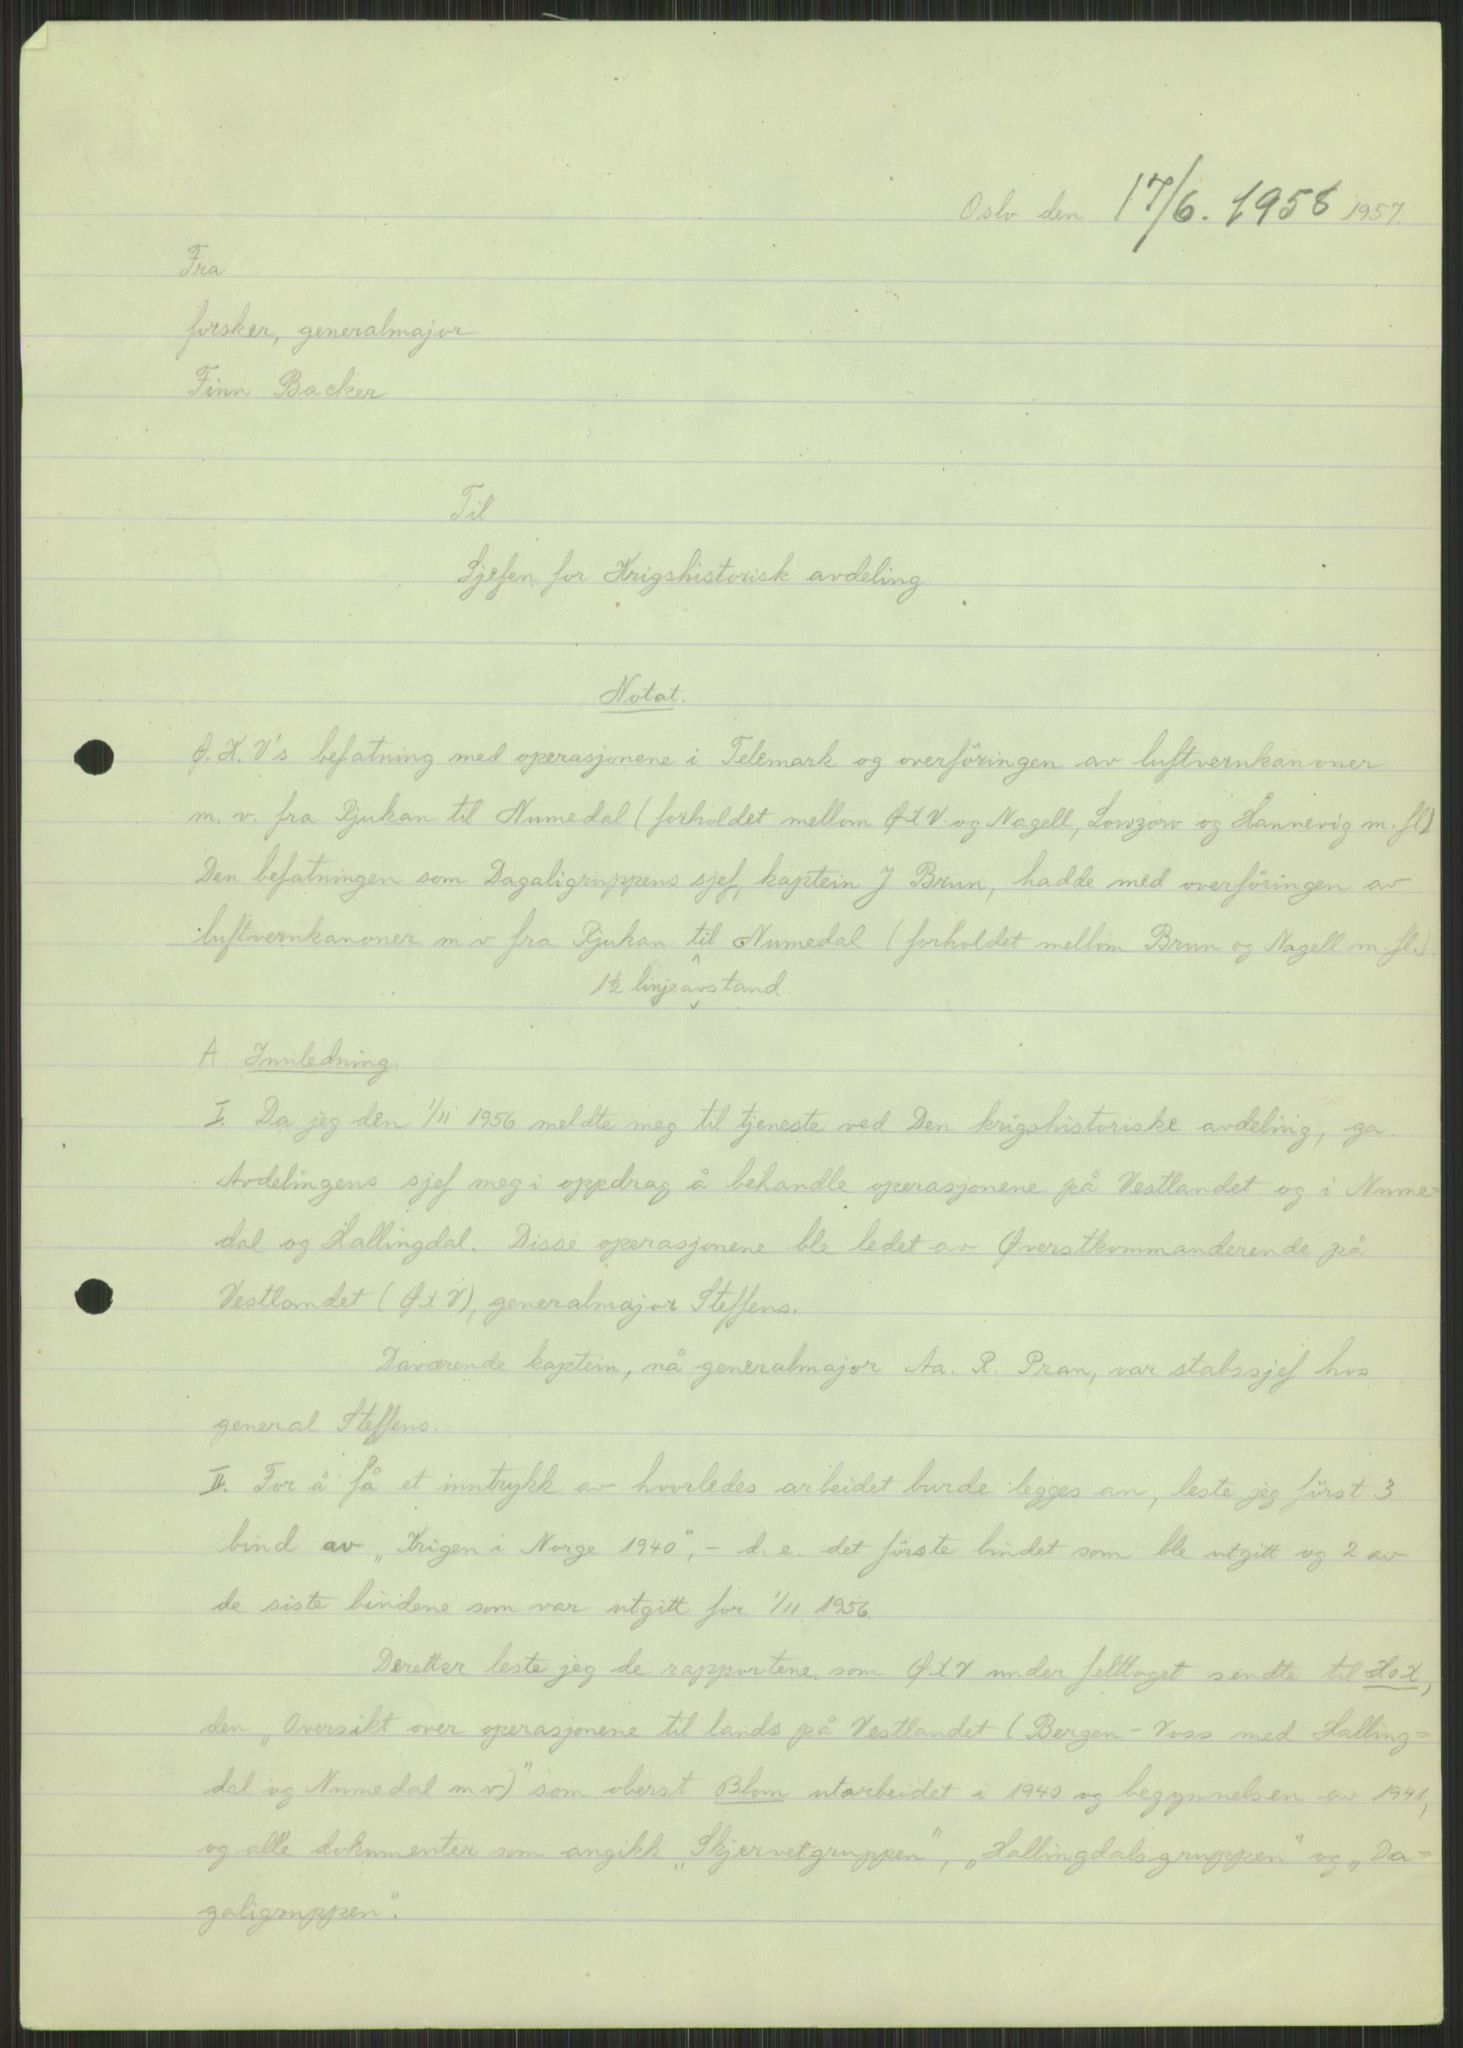 Oslo den 17/6. 1958 1957.
Fra
forsker, generalmajor
Finn Backer
Til
Sjefen for Krigshistorisk avdeling
Notat.
Ø.K.V's befatning med operasjonene i Telemark og overföringen av luftvernkanoner
m.v. fra Rjukan til Numedal (forholdet mellom ØKV og Nagell, Lowzow og Hannevig m.fl.)
Den befatningen som Dagaligruppens sjef, kaptein J Brun, hadde med overföringen av
luftvernkanoner m v fra Rjukan til Numedal (forholdet mellom Brun og Nagell m.fl.)
1½ linjeavstand
A. Innledning.
I. Da jeg den 1/11 1956 meldte meg til tjeneste ved Den krigshistoriske avdeling, ga
Avdelingens sjef meg i oppdrag å behandle operasjonene på Vestlandet og i Nume=
dal og Hallingdal. Disse operasjonene ble ledet av Øverstkommanderende på
Vestlandet (ØKV), generalmajor Steffens.
Daværende kaptein, nå generalmajor Aa. R. Pran, var stabssjef hos
general Steffens.
II. For å få et inntrykk av hvorledes arbeidet burde legges an, leste jeg först 3
bind av „Krigen i Norge 1940", - d.e. det förste bindet som ble utgitt og 2 av
de siste bindene som var utgitt for 1/11 1956.
Deretter leste jeg de rapportene som ØKV under felttoget sendte til HOK,
den „Oversikt over operasjonene til lands på Vestlandet (Bergen - Voss med Halling=
dal og Numedal m v)" som oberst Blom utarbeidet i 1940 og begynnelsen av 1941,
og alle dokumenter som angikk „Skjervetgruppen", „Hallingdalsgruppen" og „Da=
galigruppen".